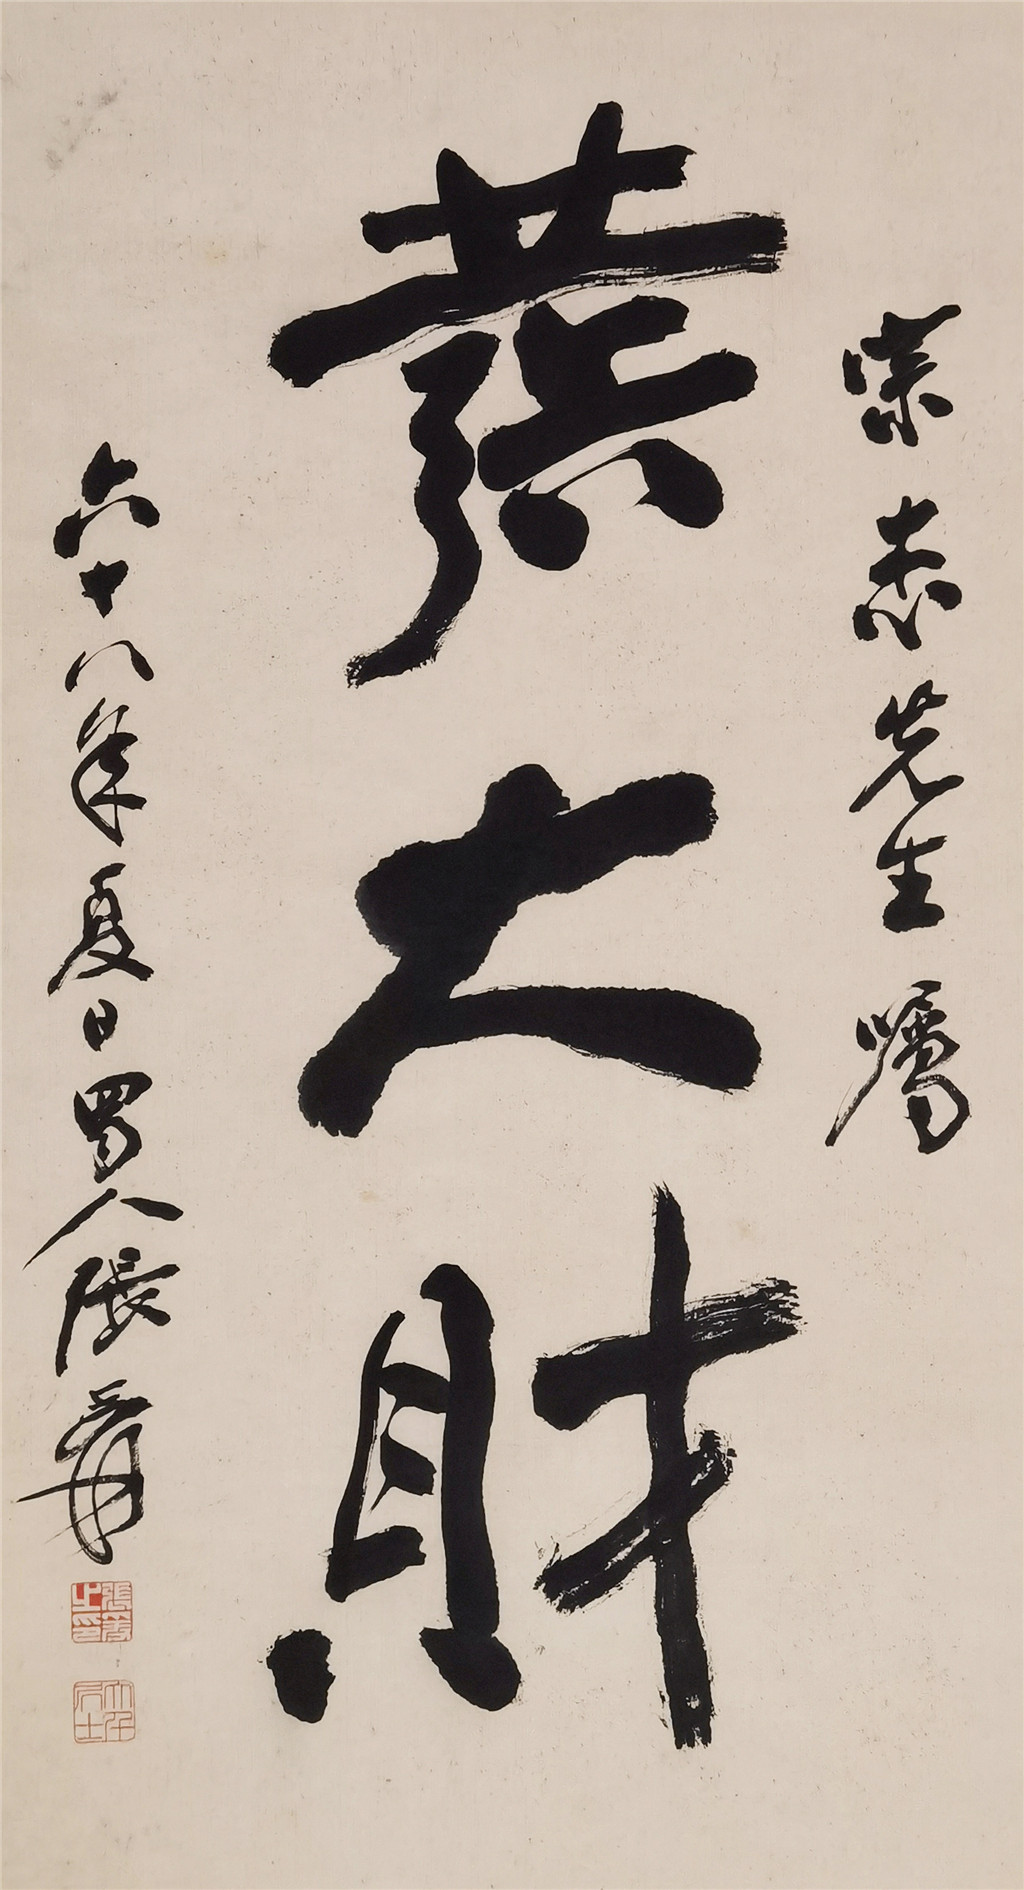 志先生囑
發大財
六十八年夏日蜀人張爰
張爰之印
大千居士